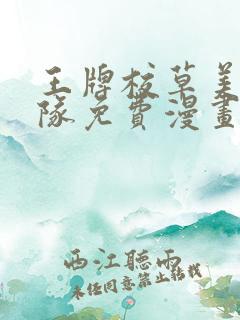 王牌校草美
隊免費漫畫
西江聽雨
未经同意禁止转载